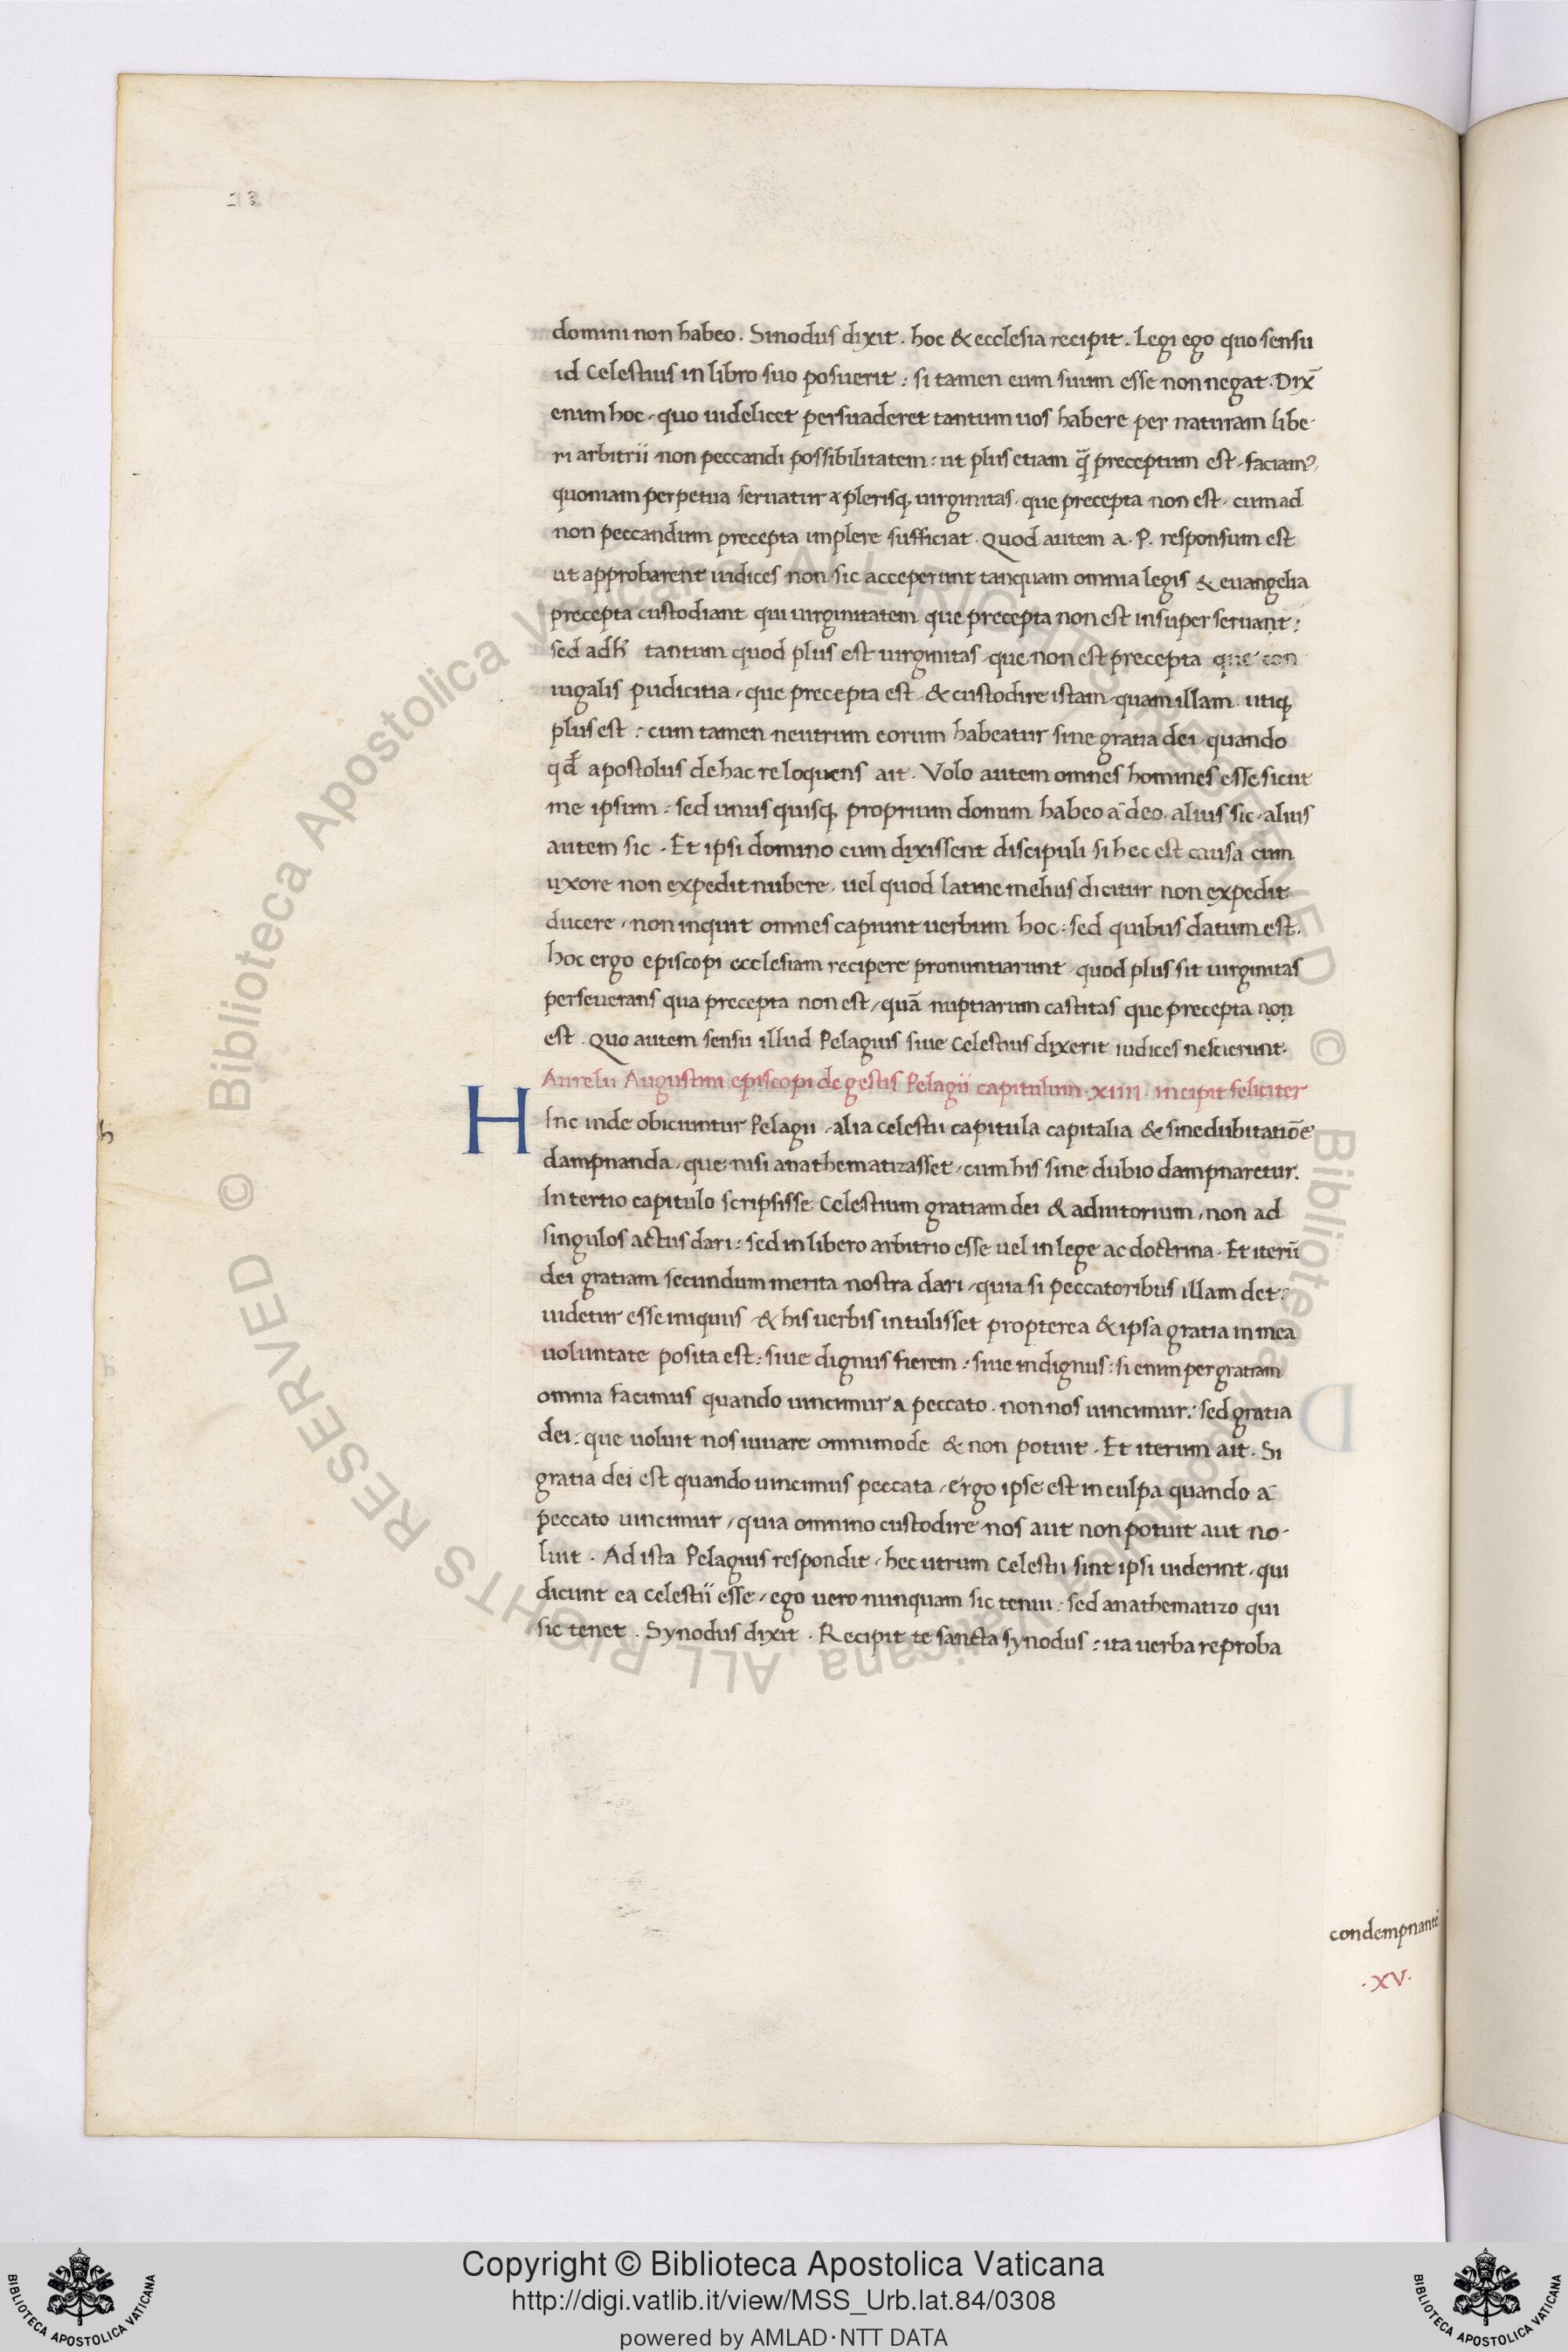 domini non habeo. Sinodus dixit. hoc & ecclesia recipit. Legi ego quo sensu
id Celestius in libro suo posuerit: si tamen eum suum esse non negat. Dix̄
enim hoc, quo uidelicet persuaderet tantum uos habere per naturam libe-
ri arbitrii non peccandi possibilitatem: ut plus etiam q̄ preceptum est, faciamꝰ,
quoniam perpetua seruatur a plerisq, uirginitas, que precepta non est, cum ad
non peccandum precepta implere sufficiat. Quod autem a. P. responsum est
ut approbarent iudices non sic acceperunt tanquam omnia legis & euangelia
precepta custodiant qui uirginitatem que precepta non est insuper seruant:
sed adh̄ tantum quod plus est uirginitas que non est precepta que con
iugalis pudicitia, que precepta est, & custodire istam quam illam. utiq,
plus est: cum tamen neutrum eorum habeatur sine gratia dei, quando
qd̄ apostolus de hac re loquens ait. Volo autem omnes homines esse sicut
me ipsum: sed unus quisq, proprium donum habeo a deo. alius sic, alius
autem sic. Et ipsi domino cum dixissent discipuli si hec est causa cum
uxore non expedit nubere, uel quod latine melius dicitur non expedit
ducere, non inquit omnes capiunt uerbum hoc: sed quibus datum est.
hoc ergo episcopi ecclesiam recipere pronuntiarunt, quod plus sit uirginitas
perseuerans qua precepta non est, quā nuptiarum castitas que precepta non
est. Quo autem sensu illud Pelagius siue Celestius dixerit iudices nescierunt.
Aurelii Augustini episcopi de gestis Pelagii capitulum. xiiii. incipit feliciter
HInc inde obiciuntur Pelagii, alia Celestii capitula capitalia & sine dubitatiōe
dampnanda, que nisi anathematizasset, cum his sine dubio dampnaretur.
In tertio capitulo scripsisse Celestium gratiam dei & adiutorium, non ad
singulos actus dari: sed in libero arbitrio esse uel in lege ac doctrina. Et iterū
dei gratiam secundum merita nostra dari, quia si peccatoribus illam det:
uidetur esse iniquus & his uerbis intulisset propterea & ipsa gratia in mea
uoluntate posita est: siue dignus fierem: siue indignus: si enim per gratiam
omnia facimus quando uincimur a peccato, non nos uincimur: sed gratia
dei: que uoluit nos iuuare omnimode & non potuit. Et iterum ait. Si
gratia dei est quando uincimus peccata, ergo ipse est in culpa quando a
peccato uincimur, quia omnino custodire nos aut non potuit aut no-
luit. Ad ista Pelagius respondit, hec utrum Celestii sint ipsi uiderint, qui
dicunt ea Celestii esse, ego uero nunquam sic tenui: sed anathematizo qui
sic tenet. Synodus dixit. Recipit te sancta synodus: ita uerba reproba
condempnante
.XV.
© Biblioteca Apostolica Vaticana ALL RIGHTS RESERVED
© Biblioteca Apostolica Vaticana ALL RIGHTS RESERVED
Copyright © Biblioteca Apostolica Vaticana
http://digi.vatlib.it/view/MSS_Urb.lat.84/0308
powered by AMLAD·NTT DATA
BIBLIOTECA APOSTOLICA VATICANA
BIBLIOTECA APOSTOLICA VATICANA